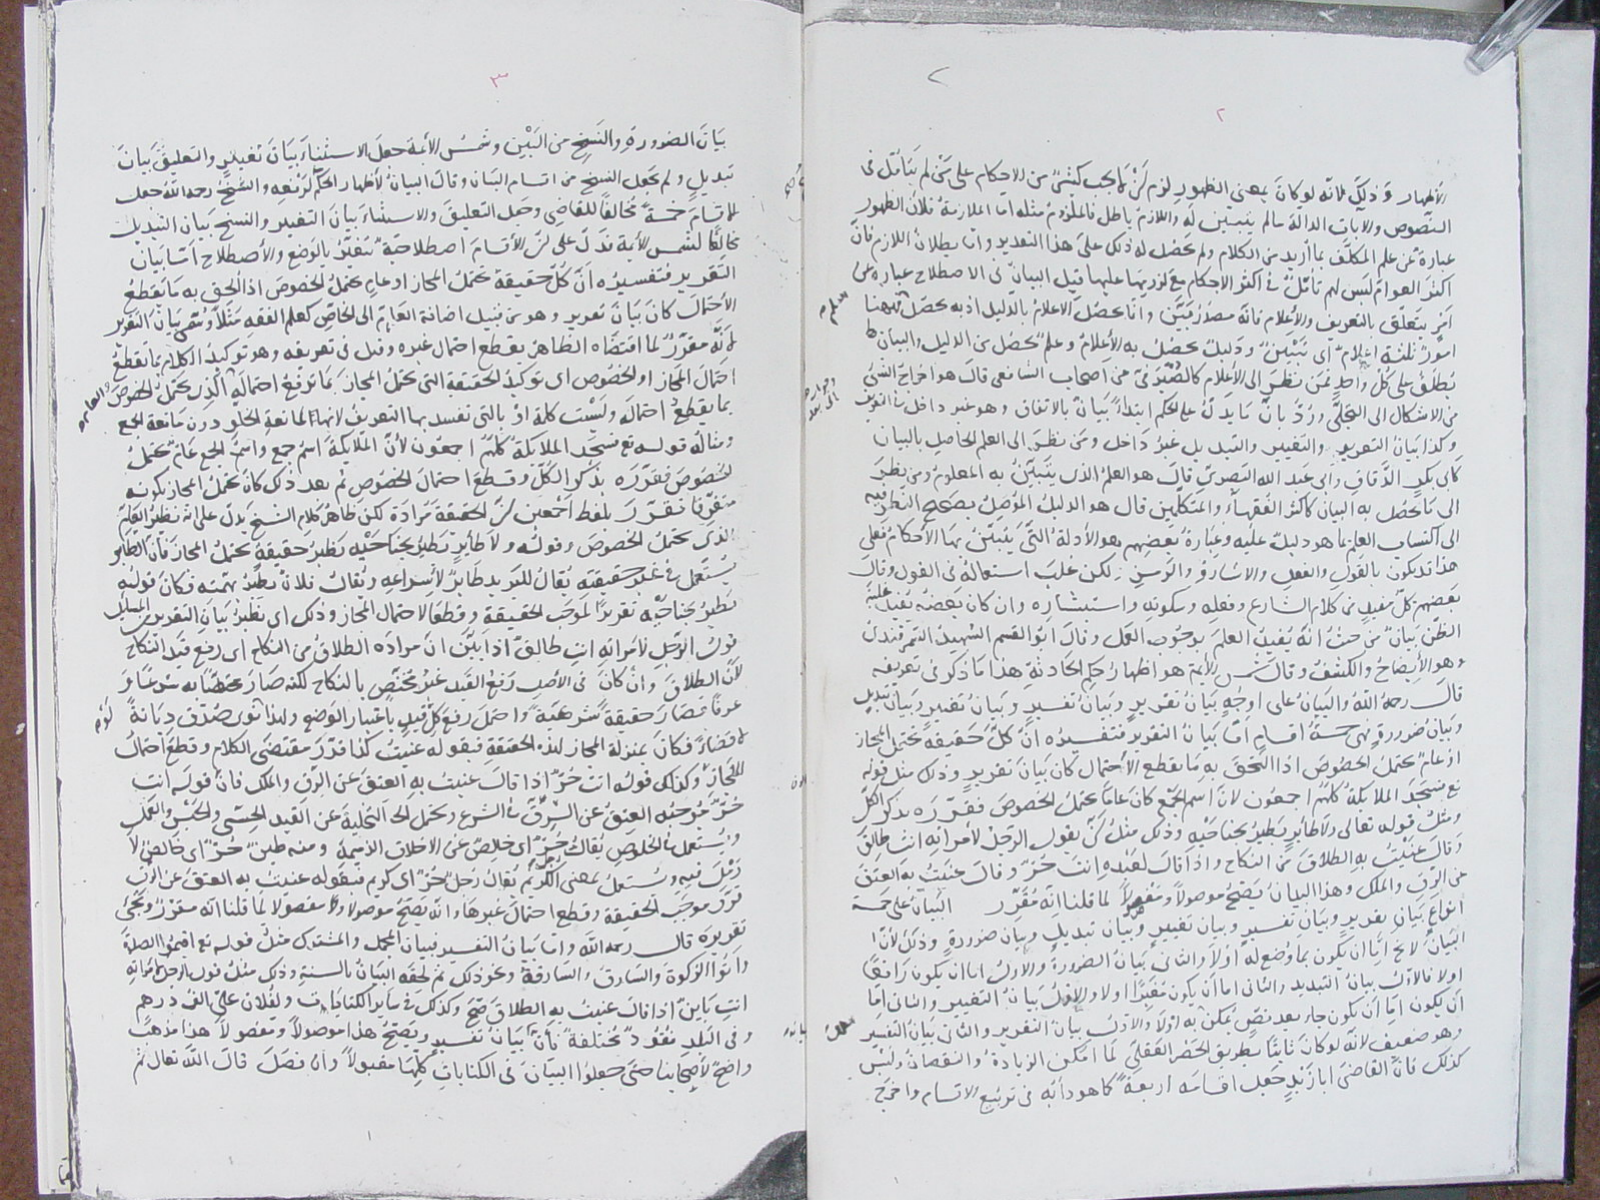 ٢
الاظهار وذلك لانه لو كان بمعنى الظهور لزم ان لا يجب كثير من الاحكام على من لم يتأمل في
النصوص والآيات الدالة ما لم يتبين له واللازم باطل فالملزوم مثله اما الملازمة فلان الظهور
عبارة عن علم المكلف بما أريد من الكلام ولم يحصل له ذلك على هذا التقدير واما بطلان اللازم فان
اكثر العوام ليس لهم تأمل في اكثر الاحكام مع لزومها عليها قيل البيان في الاصطلاح عبارة عن
امر يتعلق بالتعريف والاعلام فانه مصدر بين وانما يحصل الاعلام بالدليل اذ به يحصل العلم فههنا
امور ثلثة اعلام اى تبيين ودليل يحصل به الاعلام وعلم يحصل من الدليل والبيان
يطلق على كل واحد فمن نظر الى الاعلام كالصيرفي من اصحاب الشافعي قال هو اخراج الشئ
من الاشكال الى التجلي ورد بان ما يدل على الحكم ابتداء بيان بالاتفاق وهو غير داخل في التعريف
وكذا بيان التقرير والتغيير والتبديل غير داخل ومن نظر الى العلم الحاصل بالبيان
كابي بكر الدقاق وابي عبد الله البصري قال هو العلم الذي يتبين به المعلوم ومن نظر
الى ما يحصل به البيان كاكثر الفقهاء والمتكلمين قال هو الدليل الموصل بصحيح النظر فيه
الى اكتساب العلم بما هو دليل عليه وعبارة بعضهم هو الادلة التي يتبين بها الاحكام فعلى
هذا قد يكون بالقول والفعل والاشارة والرمز لكن غلب استعماله في القول وقال
بعضهم كل مفيد من كلام الشارع وفعله وسكوته واستبشاره وان كان بعضه يفيد غلبة
الظن بيان من حيث انه يفيد العلم بوجوب العمل وقال ابو القسم الشهيد السمرقندى
هو الايضاح والكشف وقال شمس الايمة هو اظهار حكم الحادثة هذا ما ذكر في تعريفه
قال رحمه الله والبيان على اوجه بيان تقرير وبيان تفسير وبيان تغيير وبيان تبديل
وبيان ضرورة فهي خمسة اقسام اما بيان التقرير فتفسيره ان كل حقيقة يحتمل المجاز
او عام يحتمل الخصوص اذا التحق به ما يقطع الاحتمال كان بيان تقرير وذلك مثل قوله
تع فسجد الملائكة كلهم اجمعون لان اسم الجمع كان عاما يحتمل الخصوص فقرره بذكر الكل
ومثله قوله تعالى ولا طائر يطير بجناحيه وذلك مثل ان يقول الرجل لامراته انت طالق
وقال عنيت به الطلاق من النكاح واذا قال لعبده انت حر وقال عنيت به العتق
من الرق والملك وهذا البيان يصح موصولا ومفصولا لما قلنا انه مقرر البيان على خمسة
انواع بيان تقرير وبيان تفسير وبيان تغيير وبيان تبديل وبيان ضرورة وذلك لان
البيان لا يخ اما ان يكون بما وضع له اولا والثاني بيان الضرورة والاول اما ان يكون رافعا
اولا فالاول بيان التبديل والثاني اما ان يكون مغيرا اولا والاول بيان التغيير والثاني اما
ان يكون اما ان يكون جاء بعد نص يمكن به اولا والاول بيان التقرير والثاني بيان التفسير
وهو ضعيف لانه لو كان ثابتا بطريق الحصر العقلي لما امكن الزيادة والنقصان وليس
كذلك فان القاضي ابا زيد جعل اقسامه اربعة كما هو دأبه في تربيع الاقسام واخرج
٣
بيان الضرورة والنسخ من البين وشمس الأئمة جعل الاستثناء بيان تغيير والتعليق بيان
تبديل ولم يجعل النسخ من اقسام البيان وقال البيان لاظهار الحكم لا لرفعه والشيخ رحمه الله جعل
الاقسام خمسة مخالفا للقاضي وجعل التعليق والاستثناء بيان التغيير والنسخ بيان التبديل
مخالفا لشمس الأيمة فدل على ان الاقسام اصطلاحية تتغير بالوضع والاصطلاح أما بيان
التقرير فتفسيره ان كل حقيقة يحتمل المجاز او عام يحتمل الخصوص اذا لحق به ما يقطع
الاحتمال كان بيان تقرير وهو من قبيل اضافة العام الى الخاص كعلم الفقه مثلا وسمى بيان التقرير
لانه مقرر لما اقتضاه الظاهر بقطع احتمال غيره وقيل في تعريفه وهو توكيد الكلام بما يقطع
احتمال المجاز او الخصوص اى توكيد الحقيقة التي تحتمل المجاز بما يرفع احتماله والعام الذي يحتمل الخصوص
بما يقطع احتماله وليست كلمة او بالتي تفسد بها التعريف لانها لمانعة الخلو دون مانعة الجمع
ومثاله قوله تع فسجد الملائكة كلهم اجمعون لان الملائكة اسم جمع واسم الجمع عام يحتمل
الخصوص فقرره بذكر الكل وقطع احتمال الخصوص ثم بعد ذلك كان يحتمل المجاز بكونه
متفرقا فقرر بلفظ اجمعين ان الحقيقة مرادة لكن ظاهر كلام الشيخ يدل على انه نظير العام
الذي يحتمل الخصوص وقوله ولا طائر يطير بجناحيه نظير حقيقة يحتمل المجاز فان الطائر
يستعمل في غير حقيقته يقال للبريد طاير لاسراعه ويقال فلان يطير بهمته فكان قوله
يطير بجناحيه تقريرا لموجب الحقيقة وقطعا لاحتمال المجاز وذلك اى نظير بيان التقرير في المسايل
قول الرجل لامراته انت طالق اذا بين ان مراده الطلاق من النكاح اى رفع قيد النكاح
لان الطلاق وان كان في الاصل رفع القيد غير مختص بالنكاح لكنه صار مختصا به شرعا و
عرفا فصار حقيقة شرعية واحتمل رفع كل قيد باعتبار الوضع ولهذا لو نوى صدق ديانة
لا قضاء فكان بمنزلة المجاز لهذه الحقيقة فبقوله عنيت كذا قرر مقتضى الكلام وقطع احتمال
المجاز وكذلك قوله انت حر اذا قال عنيت به العتق عن الرق والملك فان قوله انت
حر موجبه العتق عن الرق في الشرع ويحتمل التخلية عن القيد الحسي والحبس والعمل
ويستعمل في الخلوص يقال حر اى خالص عن الاخلاق الذميمة ومنه طين حر اى خالص لا
رمل فيه ويستعمل بمعنى الكرم يقال رجل حر اى كريم فبقوله عنيت به العتق عن الرق
قرر موجب الحقيقة وقطع احتمال غيرها وانه يصح موصولا ومفصولا لما قلنا انه مقرر ويجئ
تقريره قال رحمه الله واما بيان التفسير فبيان المجمل والمشترك مثل قوله تع اقيموا الصلاة
وآتوا الزكوة والسارق والسارقة ونحو ذلك ثم لحقه البيان بالسنة وذلك مثل قول الرجل لامراته
انت باين اذا قال عنيت به الطلاق صح وكذلك في ساير الكنايات ولفلان علي الف درهم
وفي البلد نقود مختلفة فان بيانه بيان تفسير ويصح هذا موصولا ومفصولا هذا مذهب
واضح لاصحابنا حتى جعلوا البيان في الكنايات كلها مقبولا وان فصل قال الله تعالى ثم